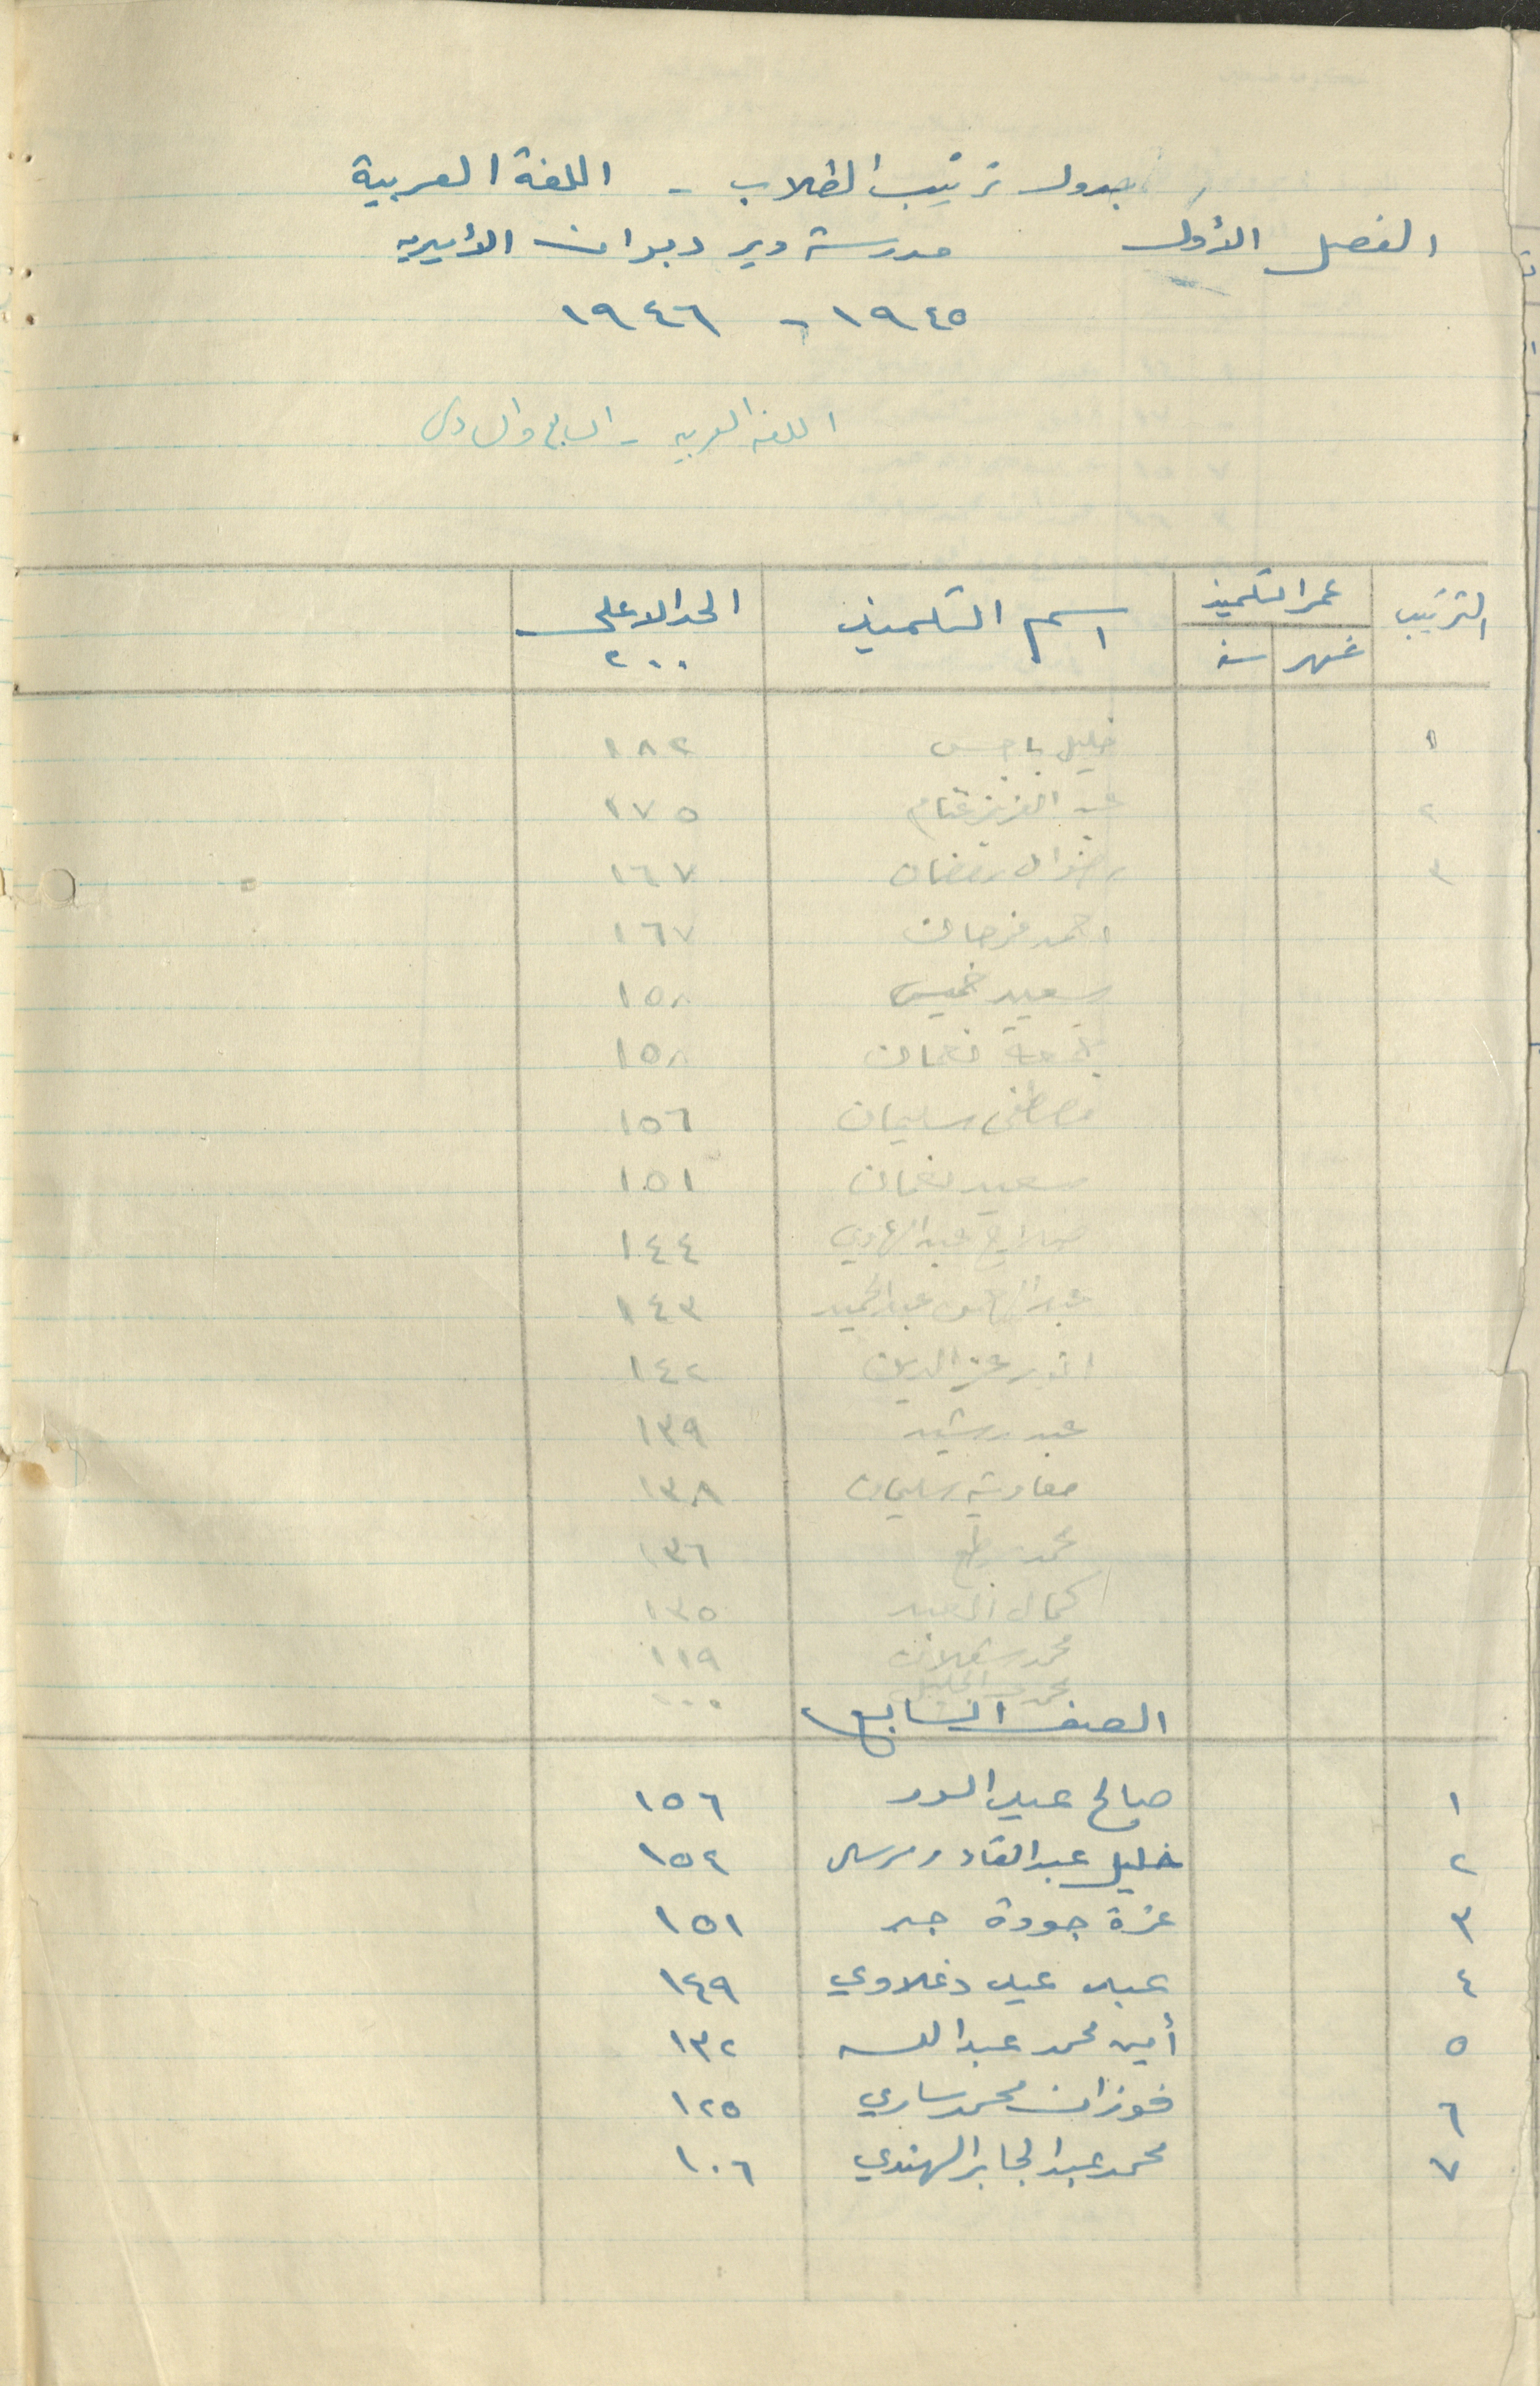 جدول ترتيب الطلاب - اللغة العربية
الفصل الأول مدرسة دير دبوان الأميرية
١٩٤٥ - ١٩٤٦
اللغة العربية - السابع والسادس
الترتيب عمر التلميذ اسم التلميذ الحد الاعلى
شهر سنة ٢٠٠
١ خليل ياسين ١٨٢
٢ عبد العزيز غنام ١٧٥
٣ رضوان رمضان ١٦٧
احمد فرحان ١٦٧
سعيد خميس ١٥٨
جمعة نعمان ١٥٨
مصطفى سليمان ١٥٦
سعيد نعمان ١٥١
عبد الهادي ١٤٤
عبد الحميد ١٤٣
انور عز الدين ١٤٢
عبد رشيد ١٣٩
معاوية سليمان ١٣٨
محمد ١٣٦
كمال العبد ١٣٥
محمد شعلان ١١٩
١٠٠
الصف السابع
١ صالح عبد ١٥٦
٢ خليل عبد القادر مرسي ١٥٤
٣ عزة جودة جبر ١٥١
٤ عبد عيد دغلاوي ١٤٩
٥ أمين محمد عبد الله ١٣٢
٦ فوزان محمد ساري ١٢٥
٧ محمد عبد الجابر الهندي ١٠٦